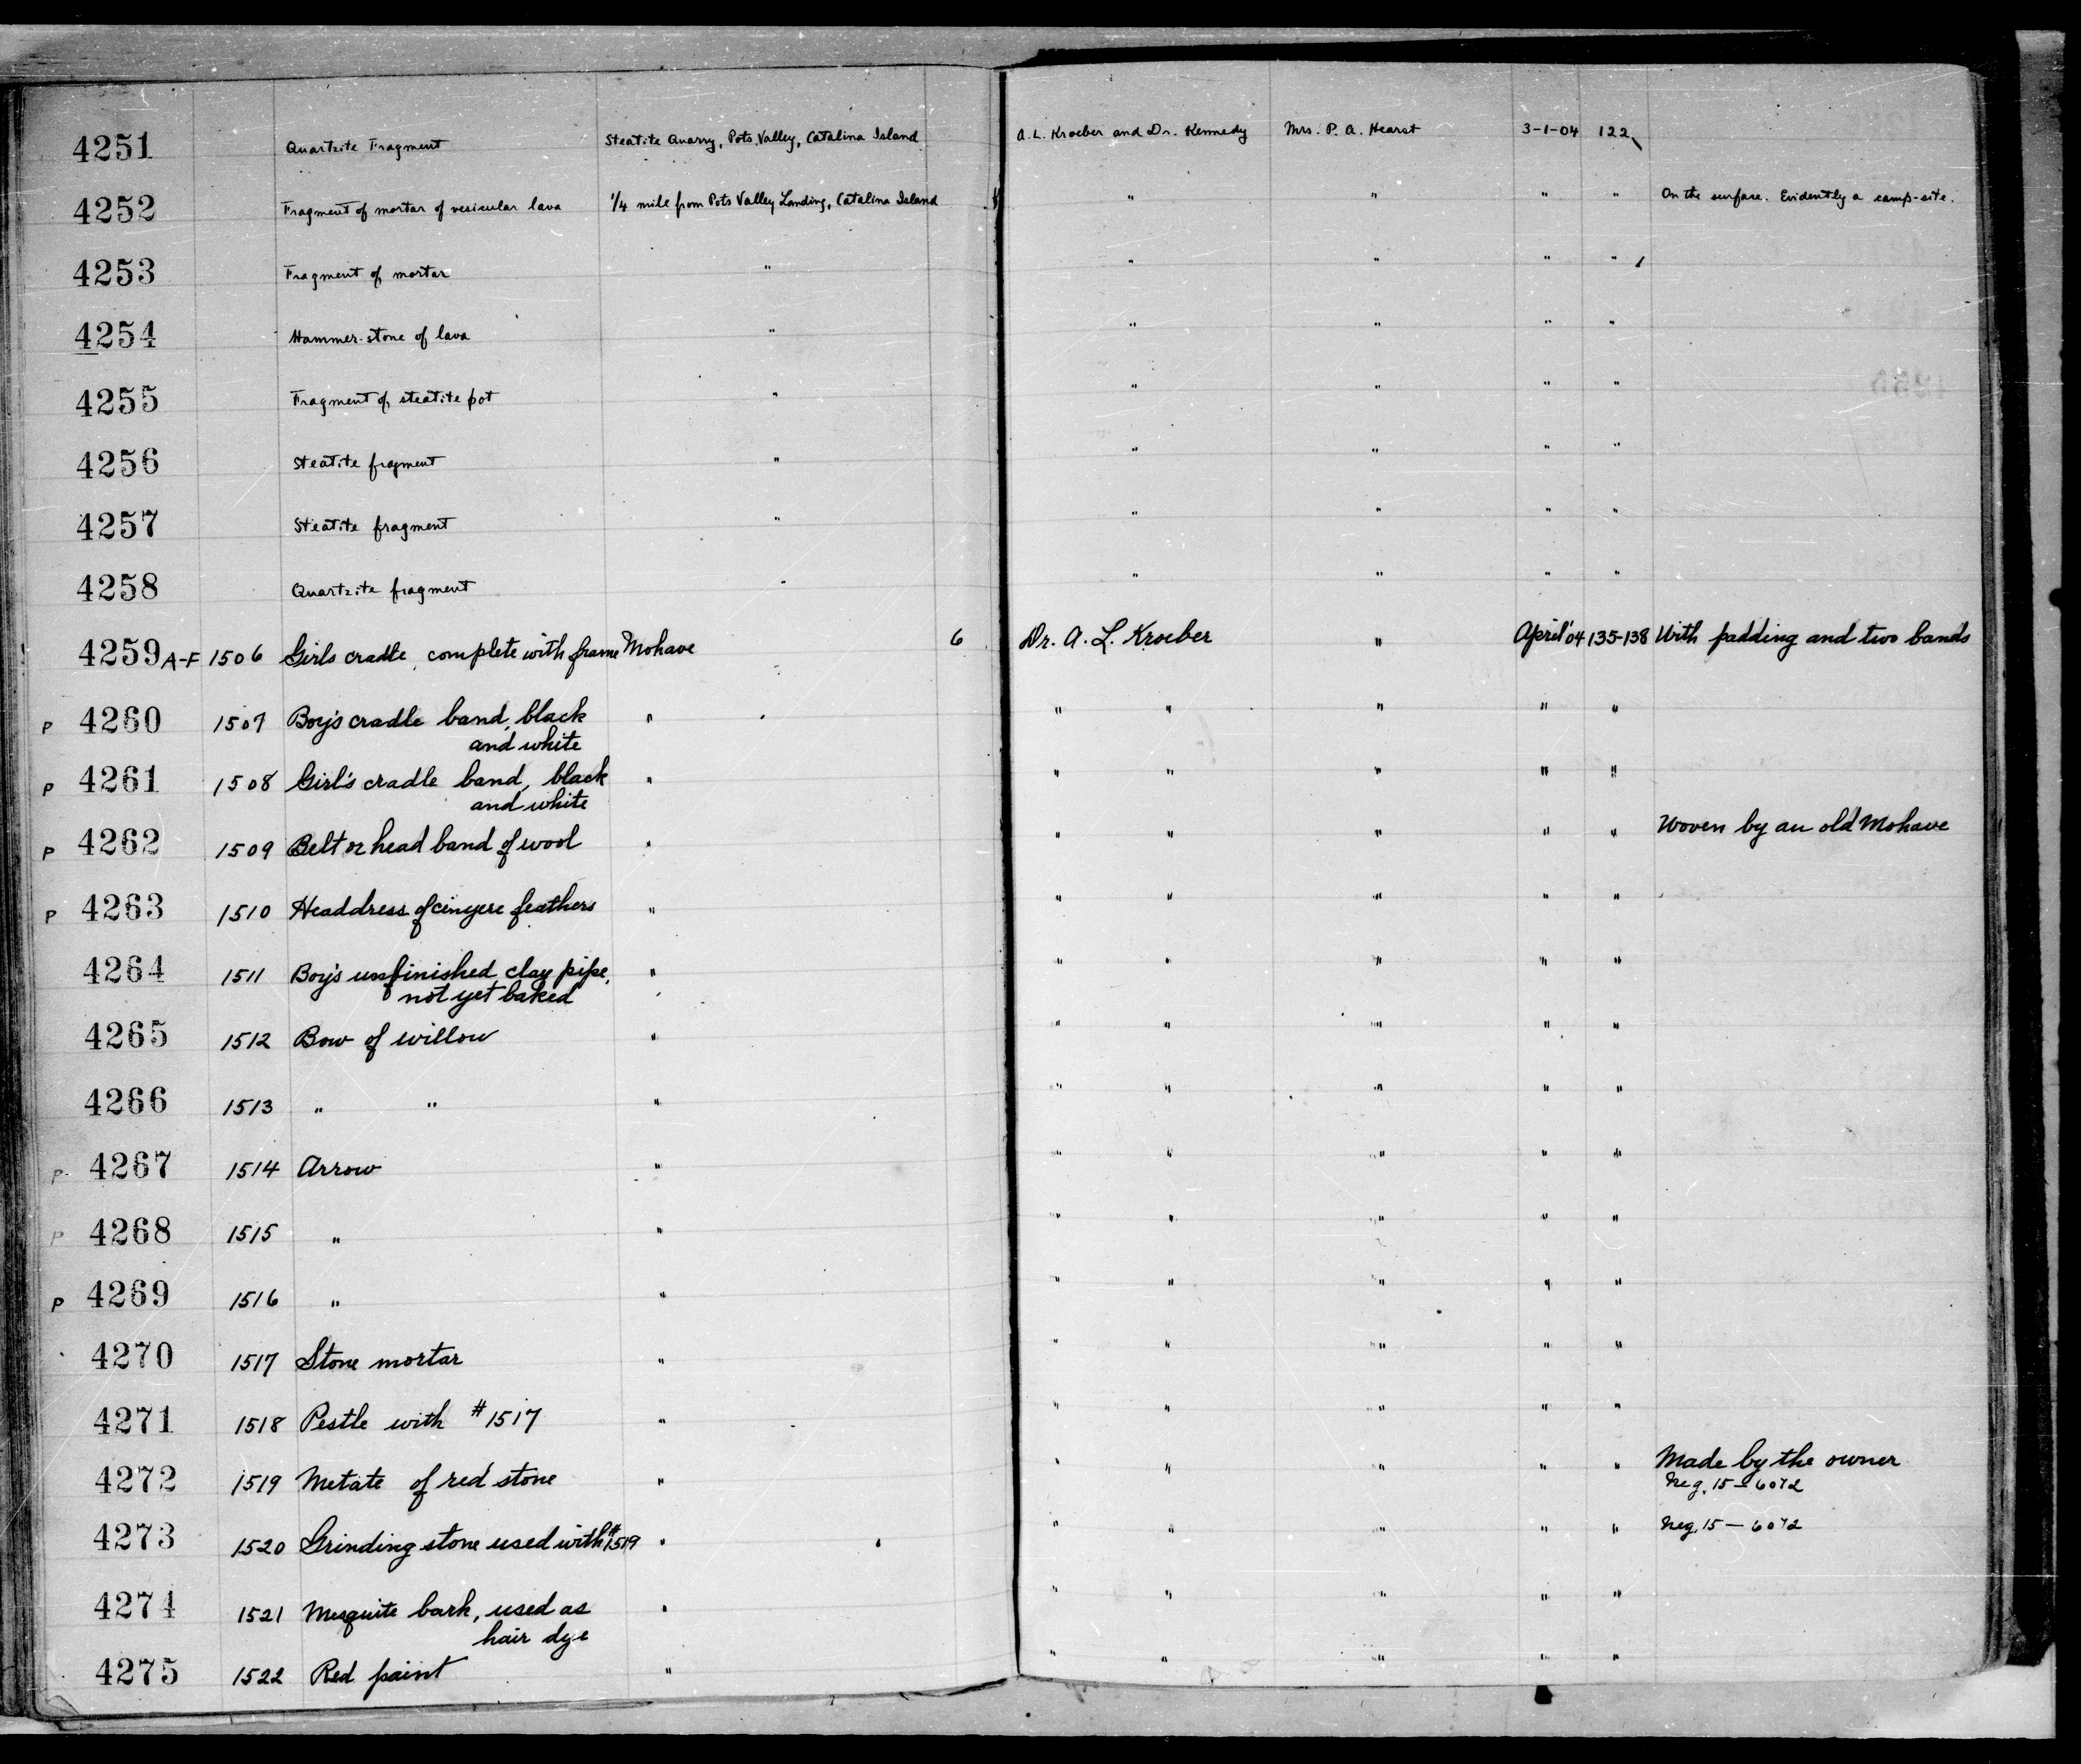 4251 Quartzite Fragment Steatite Quarry, Pots Valley, Catalina Island A. L. Kroeber and Dr. Kennedy Mrs. P. A. Hearst 3-1-04 122
4252 Fragment of mortar of vesicular lava 1/4 mile from Pots Valley Landing, Catalina Island " " " " On the surface. Evidently a camp-site.
4253 Fragment of mortar " " " " "
4254 Hammer-stone of lava " " " " "
4255 Fragment of steatite pot " " " " "
4256 Steatite fragment " " " " "
4257 Steatite fragment " " " " "
4258 Quartzite fragment " " " " "
4259 A-F 1506 Girls cradle, complete with frame Mohave 6 Dr. A. L. Kroeber " April '04 135-138 With padding and two bands
P 4260 1507 Boy's cradle band, black " " " " " "
and white
P 4261 1508 Girl's cradle band, black " " " " " "
and white
P 4262 1509 Belt or head band of wool " " " " " " Woven by an old Mohave
P 4263 1510 Headdress of feathers " " " " " "
4264 1511 Boy's unfinished clay pipe, " " " " " "
not yet baked
4265 1512 Bow of willow " " " " " "
4266 1513 " " " " " " " "
P 4267 1514 Arrow " " " " " "
P 4268 1515 " " " " " " "
P 4269 1516 " " " " " " "
4270 1517 Stone mortar " " " " " "
4271 1518 Pestle with #1517 " " " " " "
4272 1519 Metate of red stone " " " " " " Made by the owner
Neg. 15-6072
4273 1520 Grinding stone used with #1519 " " " " " " Neg. 15-6072
4274 1521 Mesquite bark, used as " " " " " "
hair dye
4275 1522 Red paint " " " " " "